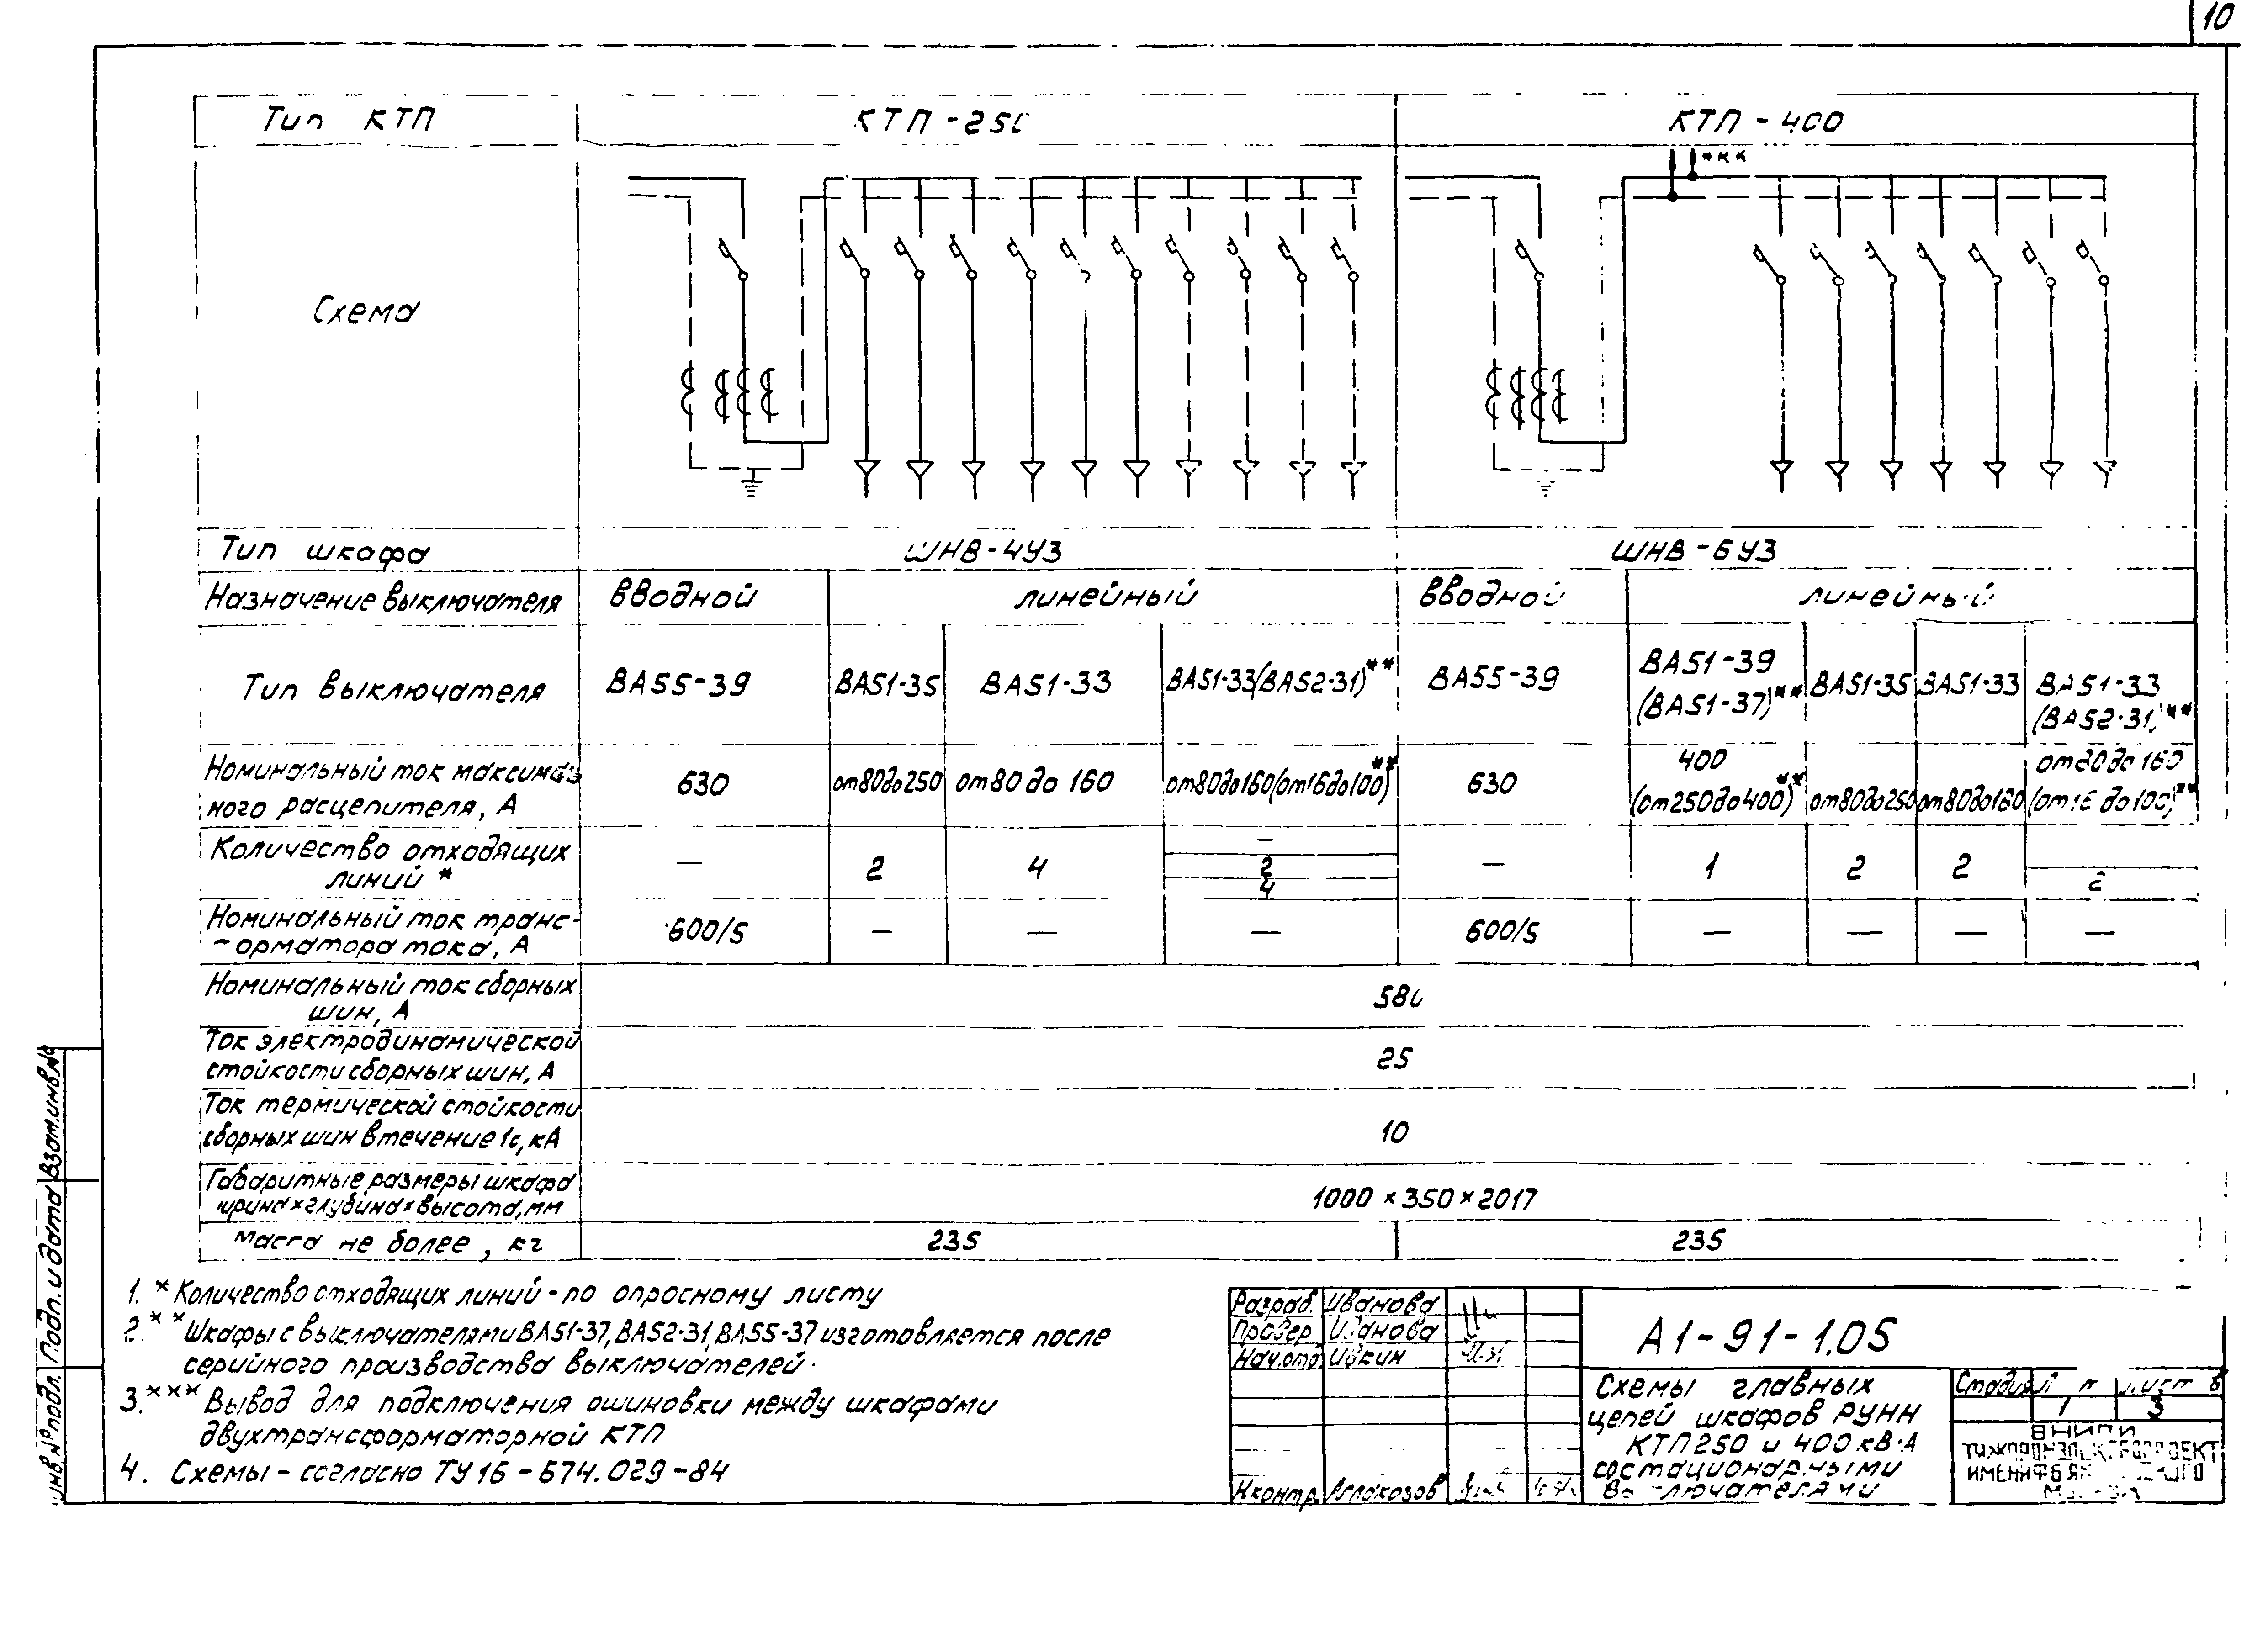 10
Тип КТП
КТП-250
КТП-400
***
Схема
Тип шкафа
ШНВ-4У3
ШНВ-6У3
Назначение выключателя
вводной
линейный
вводной
линейный
Тип выключателя
ВА55-39
ВА51-35
ВА51-33
ВА51-33(ВА52-31)**
ВА55-39
ВА51-39
(ВА51-37)**
ВА51-35
ВА51-33
ВА51-33
(ВА52-31)**
Номинальный ток максималь
ного расцепителя, А
630
от80до250
от80 до 160
от80до160(от16до100)**
630
400
(от250до400)**
от80до250
от80до160
от80до 160
(от16 до100)**
Количество отходящих
линий *
—
2
4
—
2
4
—
1
2
2
2
Номинальный ток транс-
форматора тока, А
600/5
—
—
—
600/5
—
—
—
—
Номинальный ток сборных
шин, А
580
Ток электродинамической
стойкости сборных шин, А
25
Ток термической стойкости
сборных шин в течение 1с, кА
10
Габаритные размеры шкафа
ширина×глубина×высота, мм
1000×350×2017
Масса не более, кг
235
235
1. * Количество отходящих линий - по опросному листу
2. ** Шкафы с выключателями ВА51-37, ВА52-31, ВА55-37 изготовляется после
серийного производства выключателей.
3. *** Вывод для подключения ошиновки между шкафами
двухтрансформаторной КТП
4. Схемы - согласно ТУ16-674.029-84
Разраб. Иванова
Провер Иванова
Нач.отд Ивкин
Н.контр.
А1-91-1.05
Схемы главных
цепей шкафов РУНН
КТП 250 и 400 кВ·А
со стационарными
выключателями
Стадия Лист Листов
1 3
ВНИПИ
ТЯЖПРОМЭЛЕКТРОПРОЕКТ
ИМЕНИ Ф.Б.ЯКУБОВСКОГО
МОСКВА
Инв.№подл.
Подп. и дата
Взам.инв.№